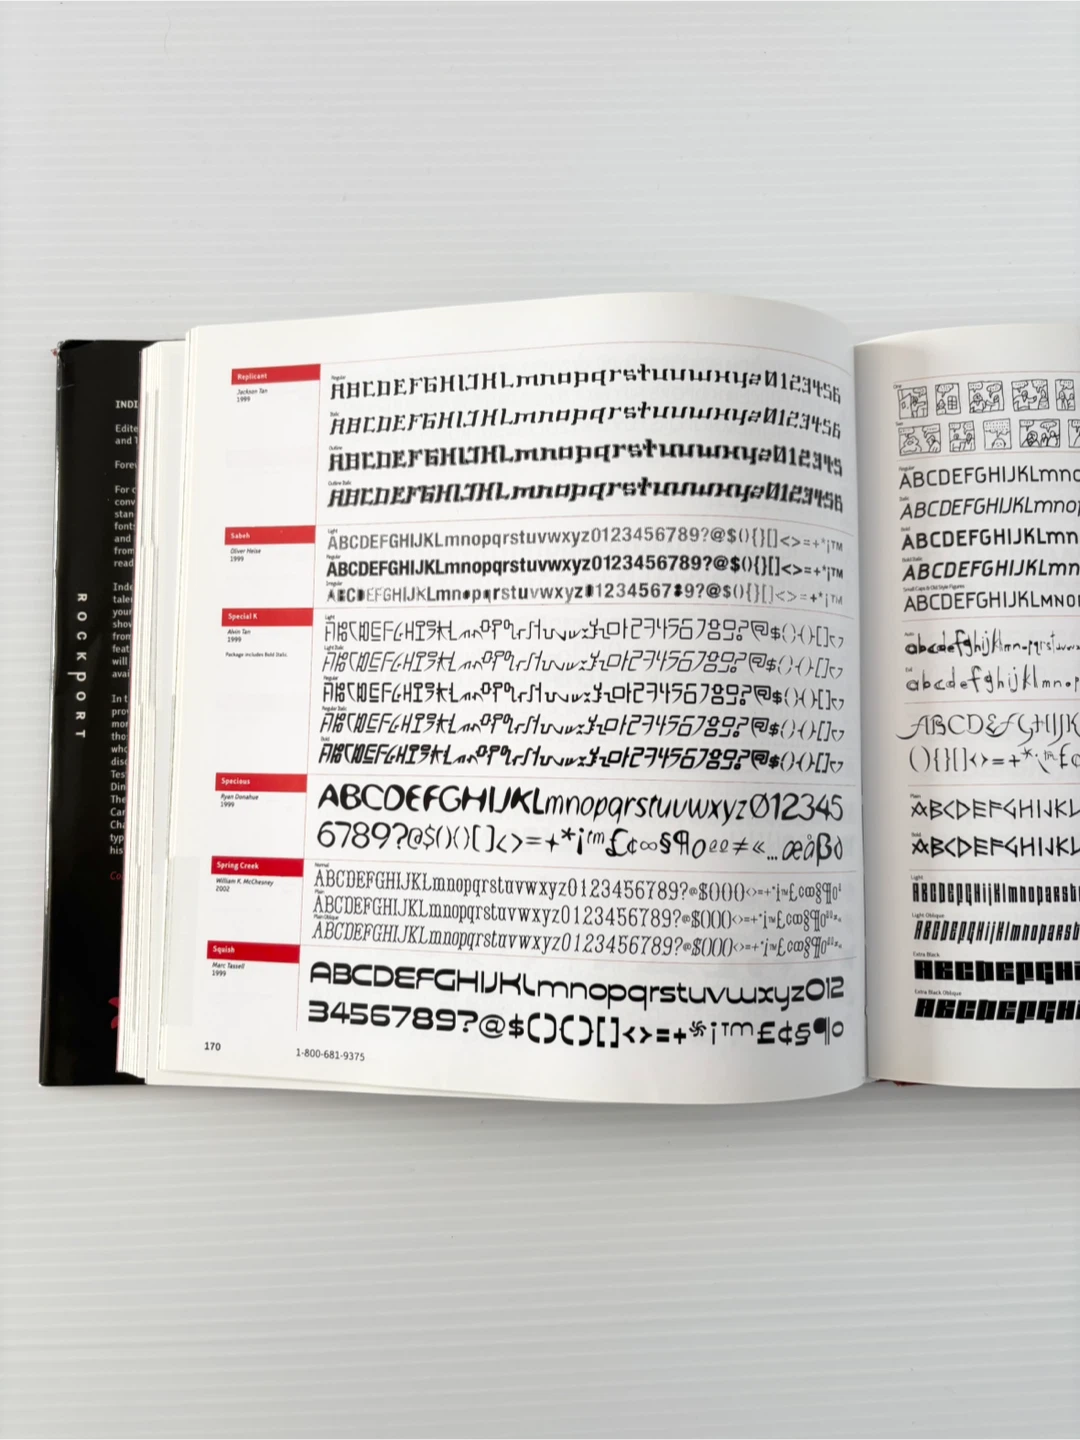 INDI
Edite
and T
Forev
For c
conv
stan
font
and
from
read
Inde
tale
your
show
from
feat
will
avai
In t
pro
mor
tho
who
disc
Tes
Din
The
Car
Cha
typ
his
Co
ROCKPORT
Replicant
Jackson Tan
1999
Regular
ABCDEFGHIJKLmnopqrstuvwxyz0123456
Italic
ABCDEFGHIJKLmnopqrstuvwxyz0123456
Outline
ABCDEFGHIJKLmnopqrstuvwxyz0123456
Outline Italic
ABCDEFGHIJKLmnopqrstuvwxyz0123456
Sabeh
Oliver Heise
1999
Light
ABCDEFGHIJKLmnopqrstuvwxyz0123456789?@$(){}[]<>=+*¡™
Regular
ABCDEFGHIJKLmnopqrstuvwxyz0123456789?@$(){}[]<>=+*¡™
Irregular
ABCDEFGHIJKLmnopqrstuvwxyz0123456789?@$(){}[]<>=+*¡™
Special K
Alvin Tan
1999
Package includes Bold Italic.
Light
ABCDEFGHIJKLmnopqrstuvwxyz0123456789?@$(){}[]<>
Light Italic
ABCDEFGHIJKLmnopqrstuvwxyz0123456789?@$(){}[]<>
Regular
ABCDEFGHIJKLmnopqrstuvwxyz0123456789?@$(){}[]<>
Regular Italic
ABCDEFGHIJKLmnopqrstuvwxyz0123456789?@$(){}[]<>
Bold
ABCDEFGHIJKLmnopqrstuvwxyz0123456789?@$(){}[]<>
Specious
Ryan Donahue
1999
ABCDEFGHIJKLmnopqrstuvwxyz012345
6789?@$(){}[]<>=+*¡™£¢∞§¶
Spring Creek
William K. McChesney
2002
Normal
ABCDEFGHIJKLmnopqrstuvwxyz0123456789?@$(){}[]<>=+*¡™£¢∞§¶
Plain
ABCDEFGHIJKLmnopqrstuvwxyz0123456789?@$(){}[]<>=+*¡™£¢∞§¶
Plain Oblique
ABCDEFGHIJKLmnopqrstuvwxyz0123456789?@$(){}[]<>=+*¡™£¢∞§¶
Squish
Marc Tassell
1999
ABCDEFGHIJKLmnopqrstuvwxyz012
3456789?@$(){}[]<>=+*¡™£¢§¶o
170
1-800-681-9375
One
Two
Regular
ABCDEFGHIJKLmno
Italic
ABCDEFGHIJKLmnop
Bold
ABCDEFGHIJKLmn
Bold Italic
ABCDEFGHIJKLmn
Small Caps & Old Style Figures
ABCDEFGHIJKLMNO
abcdefghijklmnopqrstuvw
abcdefghijklmnop
ABCDEFGHIJK
(){}[]<>=+*¡™£¢
Plain
ABCDEFGHIJKL
Bold
ABCDEFGHIJKL
Light
ABCDEFGHijklmnopqrst
Light Oblique
ABCDEFGHIjklmnopqrst
Extra Black
ABCDEFGHI
Extra Black Oblique
ABCDEFGHI